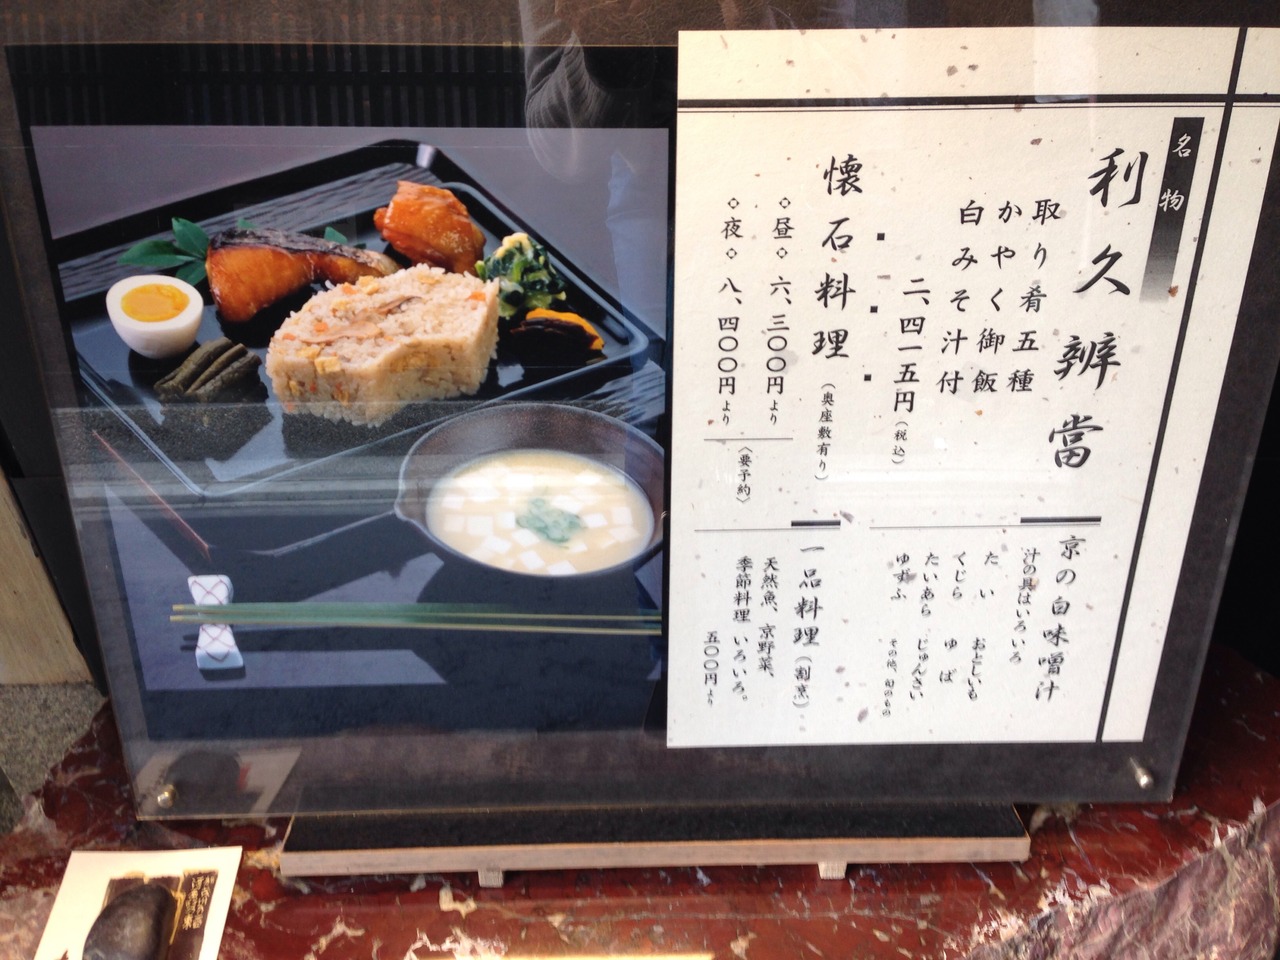 名物
利久辨當
取り肴五種
かやく御飯
白みそ汁付
二、四一五円（税込）
懐石料理（奥座敷有り）
昼 六、三〇〇円より
夜 八、四〇〇円より
〈要予約〉
京の白味噌汁
汁の具はいろいろ
たい おとしいも
くじら ゆば
たいあら じゅんさい
ゆずふ その他、旬のもの
一品料理（割烹）
天然魚、京野菜、
季節料理 いろいろ。
五〇〇円より